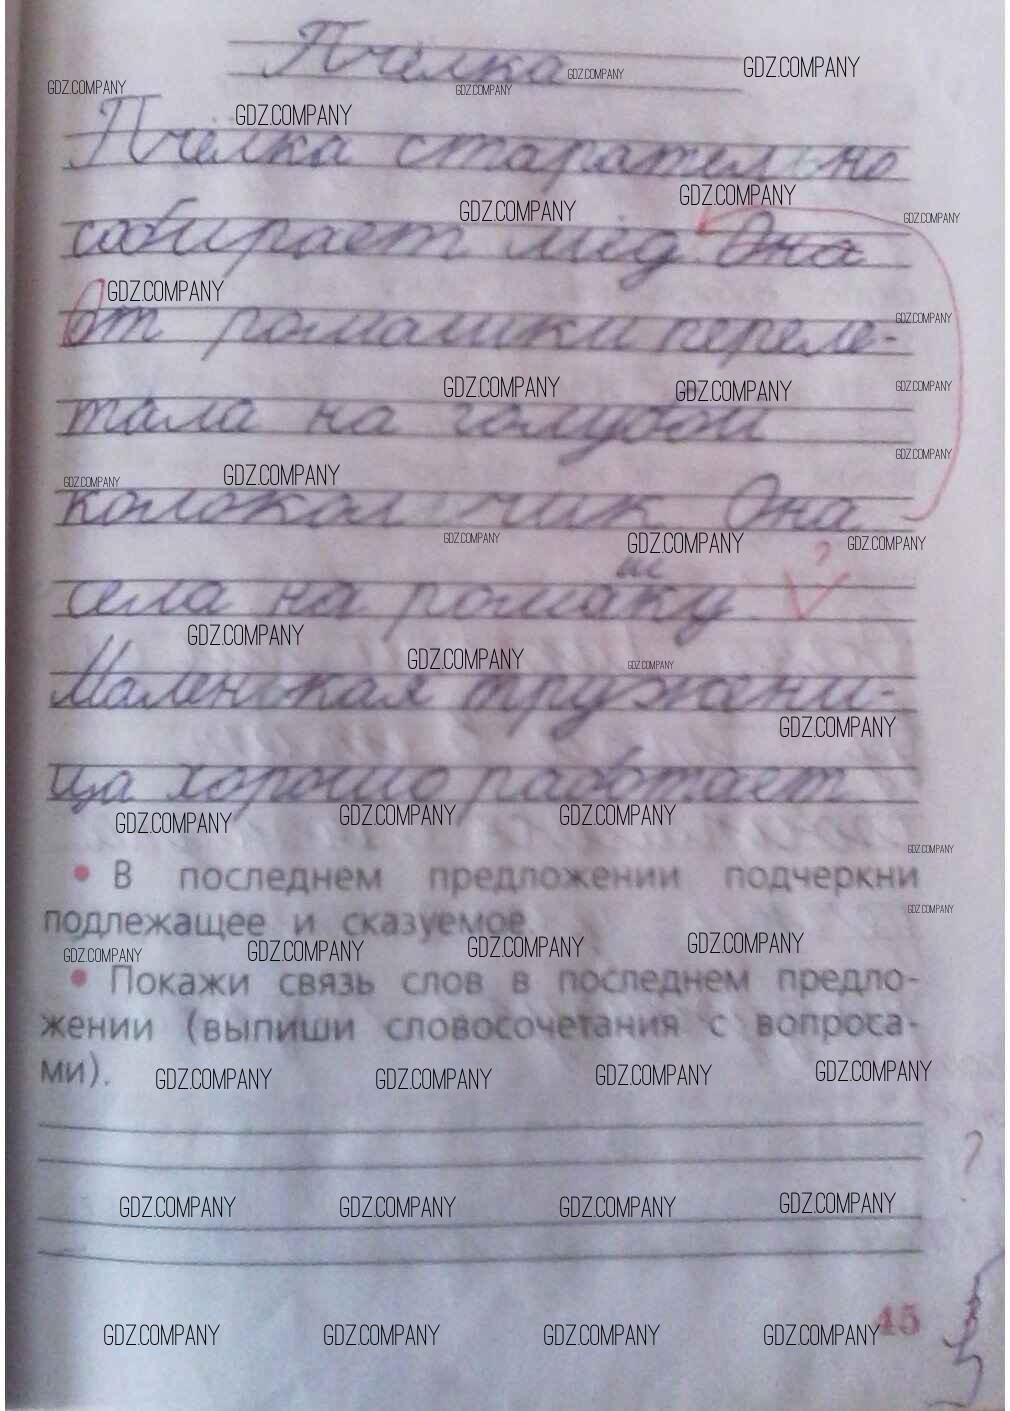 Пчёлка
Пчёлка старательно
собирает мёд. Она
От ромашки переле-
тала на голубой
колокольчик. Она
ш
села на ромаку. ?
Маленькая тружени-
ца хорошо работает
• В последнем предложении подчеркни
подлежащее и сказуемое.
• Покажи связь слов в последнем предло-
жении (выпиши словосочетания с вопроса-
ми).
?
45
GDZ.COMPANY